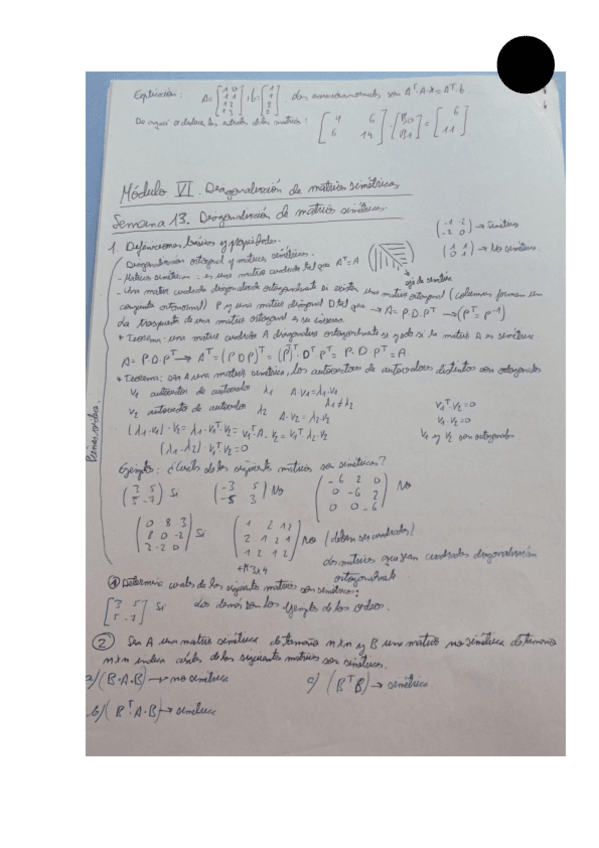 Explicación: A = [1 0 / 1 1 / 1 2 / 1 3] ; b = [1 / 1 / 2 / 2] las ecuaciones normales son Aᵀ·A·x = Aᵀ·b.
De aquí se deduce las entradas de las matrices: [4 6 / 6 14] · [β0 / β1] = [6 / 11]
Módulo VI. Diagonalización de matrices simétricas
Semana 13. Diagonalización de matrices simétricas.
1. Definiciones básicas y propiedades.
(-1 -2 / -2 0) → Simétrica
Diagonalización ortogonal y matrices simétricas.
(1 1 / 0 1) → No simétrica.
- Matriz simétrica: es una matriz cuadrada tal que Aᵀ = A
eje de simetría
- Una matriz cuadrada diagonaliza ortogonalmente si existen una matriz ortogonal (columnas forman un
conjunto ortonormal) P y una matriz diagonal D tal que → A = P·D·Pᵀ → (Pᵀ = P⁻¹)
La traspuesta de una matriz ortogonal es su inversa.
* Teorema: una matriz cuadrada A diagonaliza ortogonalmente si y solo si la matriz A es simétrica
A = P·D·Pᵀ → Aᵀ = (P D Pᵀ)ᵀ = (Pᵀ)ᵀ·Dᵀ·Pᵀ = P·D·Pᵀ = A
* Teorema: sea A una matriz simétrica, los autovectores de autovalores distintos son ortogonales
V1 autovector de autovalor λ1 A·V1 = λ1·V1
V2 autovector de autovalor λ2 A·V2 = λ2·V2
λ1 ≠ λ2
V1ᵀ·V2 = 0
V1·V2 = 0
(λ1·V1)·V2 = λ1·V1ᵀ·V2 = V1ᵀ·A·V2 = V1ᵀ·λ2·V2
V1 y V2 son ortogonales
(λ1 - λ2)·V1ᵀ·V2 = 0
Ejemplo: ¿Cuáles de las siguientes matrices son simétricas?
(3 5 / 5 -7) Si (-3 5 / -5 3) No (-6 2 0 / 0 -6 2 / 0 0 -6) No
(0 8 3 / 8 0 -2 / 3 -2 0) Si (1 2 1 2 / 2 1 2 1 / 1 2 1 2) No (deben ser cuadradas)
3x4
las matrices que sean cuadradas diagonalizarán
ortogonalmente
① Determina cuales de las siguientes matrices son simétricas:
[3 5 / 5 -7] Si las demás son los ejemplos de los videos.
② Sea A una matriz simétrica de tamaño nxn y B una matriz no simétrica de tamaño
nxn indica cuáles de las siguientes matrices son simétricas.
a) (B·A·B) → no simétrica c) (BᵀB) → simétrica
b) (Bᵀ·A·B) → simétrica